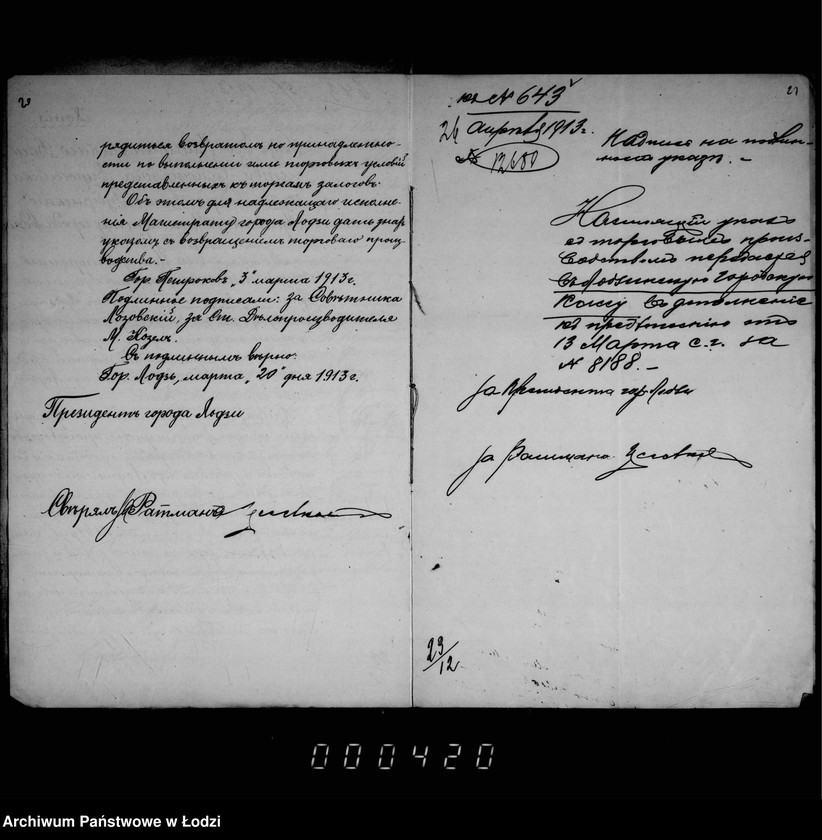 рядиться возвратомъ по принадлежно-
сти по выполненіи ими торговыхъ условій
представленныхъ къ торгамъ залоговъ.
Объ этомъ для надлежащаго исполне-
нія Магистрату города Лодзи дать знать
указомъ съ возвращеніемъ торговаго произ-
водства.-
Гор. Петроковъ „3“ марта 1913 г.
Подлинное подписали: за Совѣтника
Мозовскій, за Ст. Дѣлопроизводителя
М. Козелъ.
Съ подлиннымъ вѣрно:
Гор. Лодзь, марта „20“ дня 1913 г.
Президентъ города Лодзи
Свѣрялъ, За Ратмана
къ № 643
21
26 Апрѣля 1913 г.
№ 12680
Надпись на подлин-
номъ указѣ. -
Настоящій указъ
съ торговымъ произ-
водствомъ передается
въ Лодзинскую Городскую
Кассу въ дополненіе
къ предписанію отъ
13 Марта с.г. за
№ 8188. -
за Президента гор. Лодзи
за Ратмана
23/12
000420
Archiwum Państwowe w Łodzi